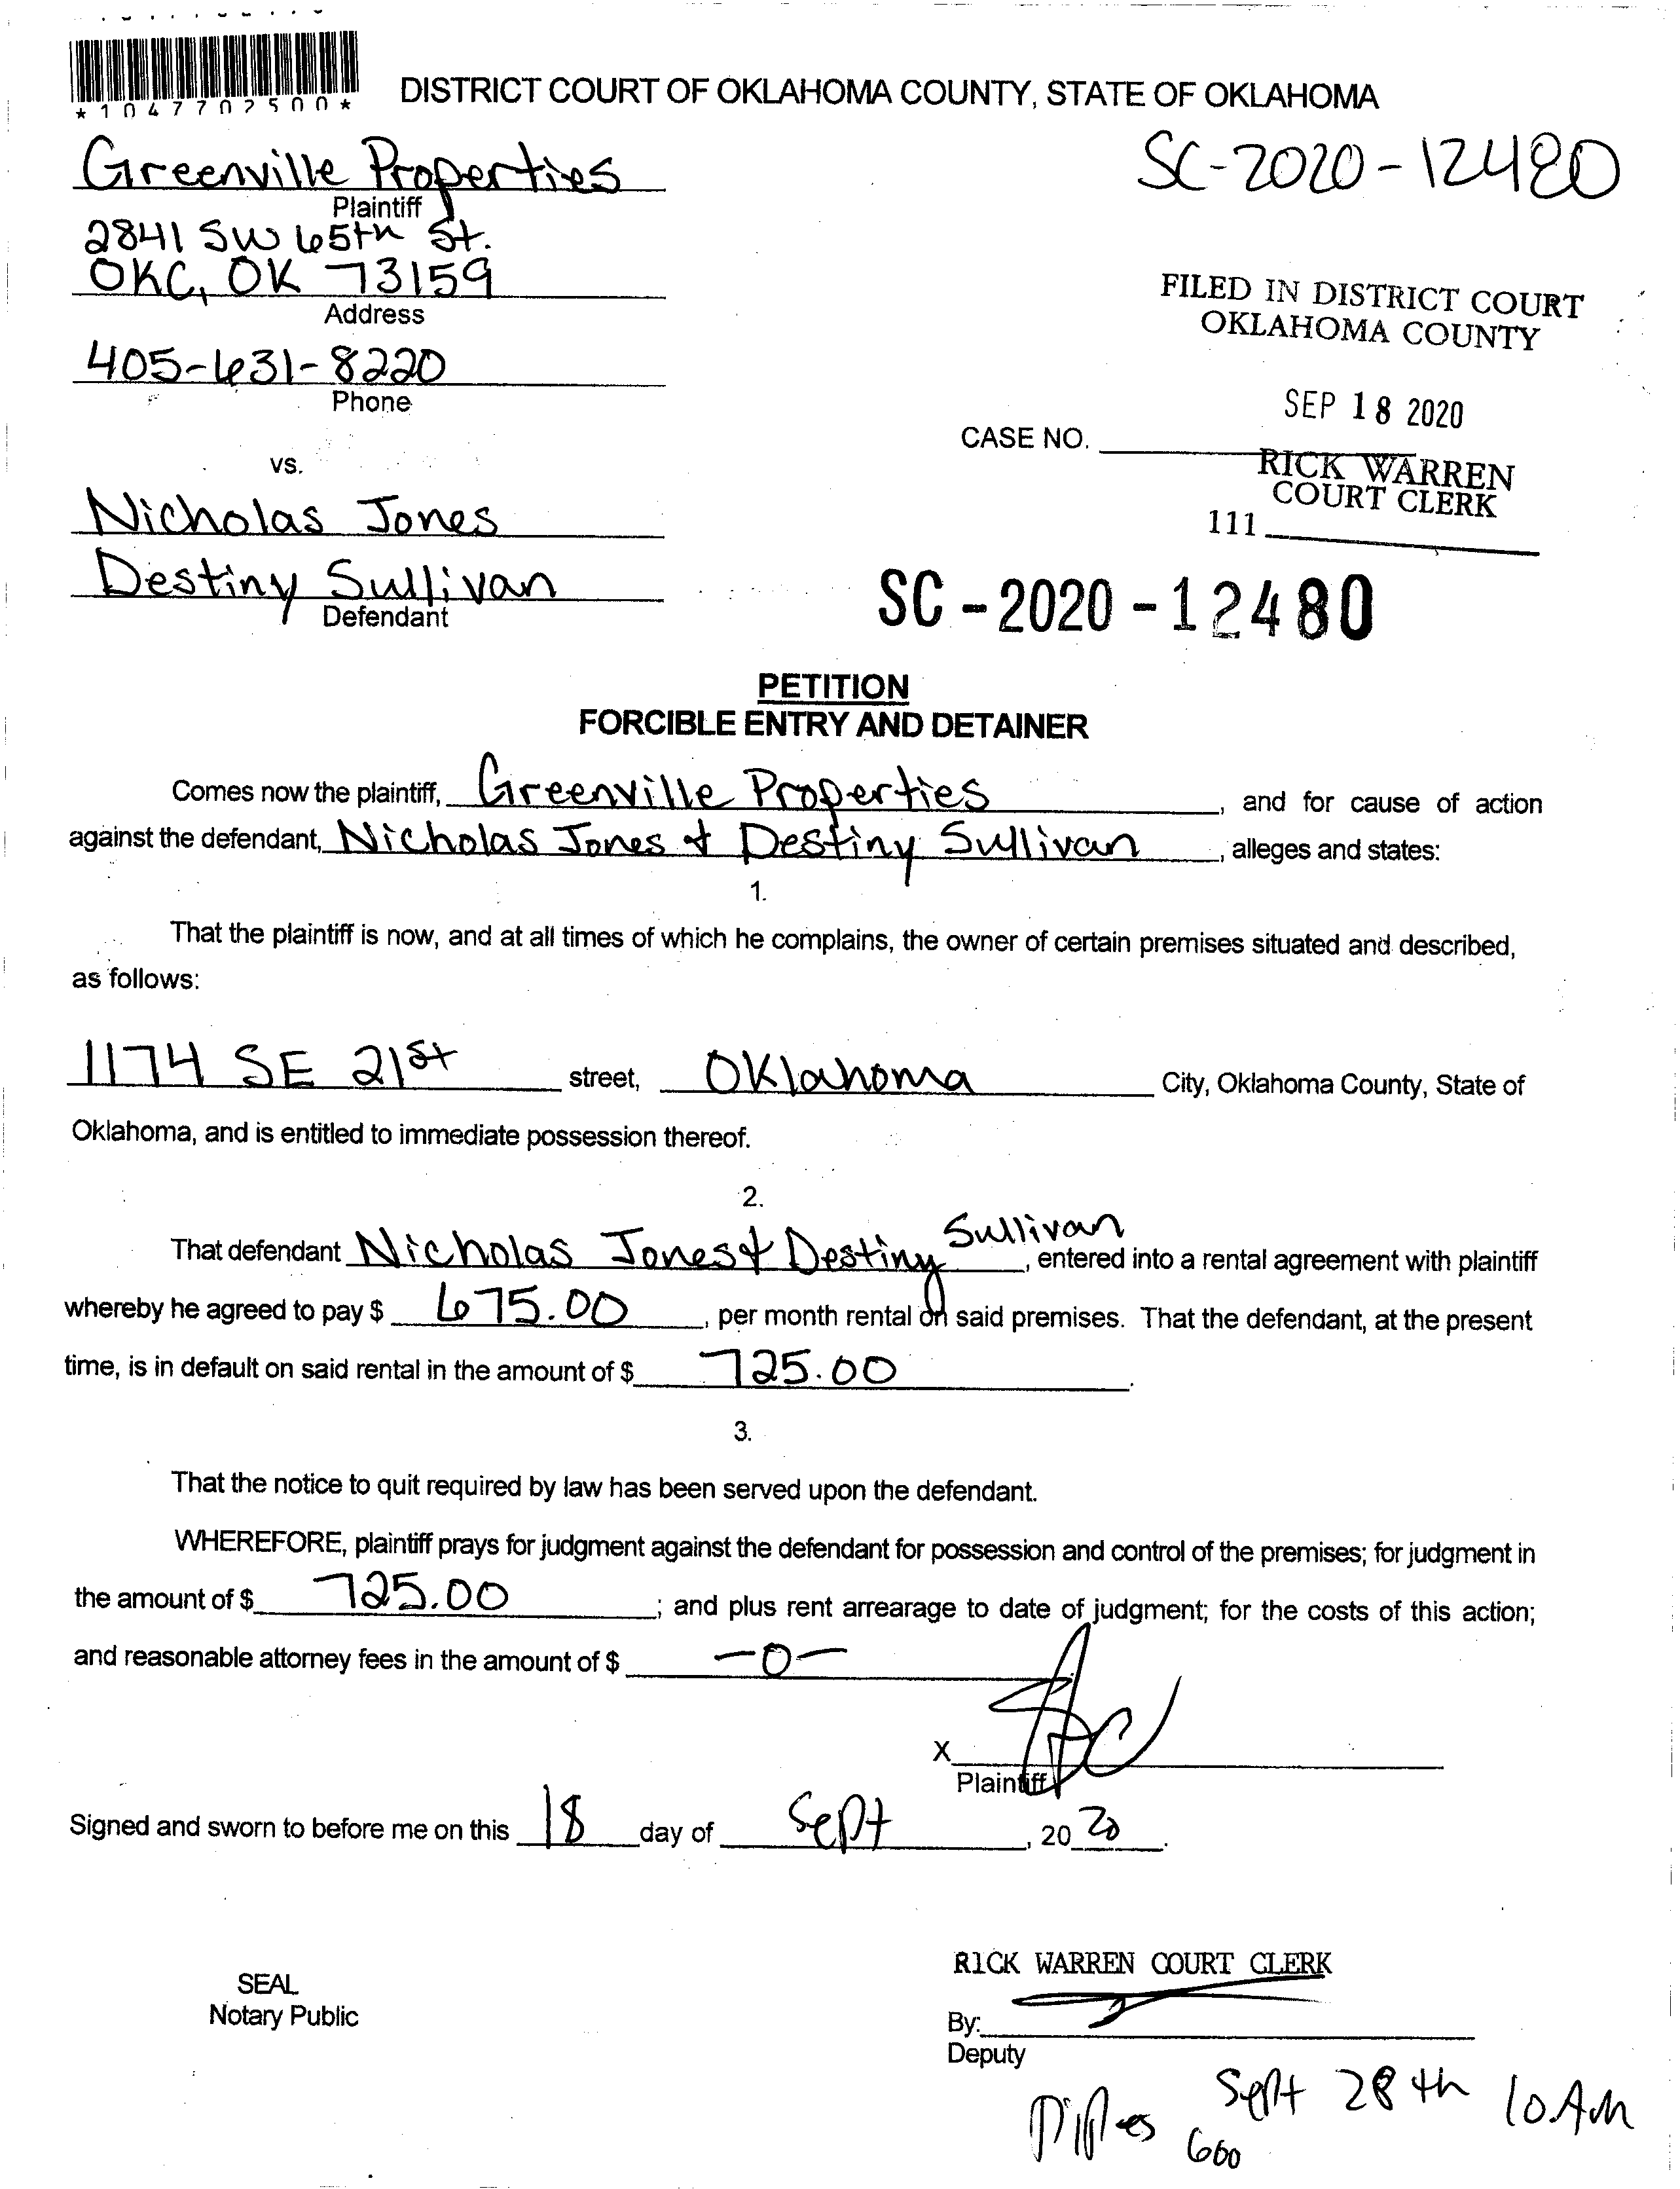 *1047702500*
DISTRICT COURT OF OKLAHOMA COUNTY, STATE OF OKLAHOMA
Greenville Properties
Plaintiff
SC-2020-12480
2841 SW 65th St.
OKC, OK 73159
Address
FILED IN DISTRICT COURT
OKLAHOMA COUNTY
405-631-8220
Phone
SEP 18 2020
CASE NO.
RICK WARREN
COURT CLERK
111
vs.
Nicholas Jones
Destiny Sullivan
Defendant
SC-2020-12480
PETITION
FORCIBLE ENTRY AND DETAINER
Comes now the plaintiff, Greenville Properties, and for cause of action
against the defendant, Nicholas Jones & Destiny Sullivan, alleges and states:
1.
That the plaintiff is now, and at all times of which he complains, the owner of certain premises situated and described,
as follows:
1174 SE 21st street, Oklahoma City, Oklahoma County, State of
Oklahoma, and is entitled to immediate possession thereof.
2.
That defendant Nicholas Jones & Destiny Sullivan, entered into a rental agreement with plaintiff
whereby he agreed to pay $ 675.00, per month rental on said premises. That the defendant, at the present
time, is in default on said rental in the amount of $ 725.00.
3.
That the notice to quit required by law has been served upon the defendant.
WHEREFORE, plaintiff prays for judgment against the defendant for possession and control of the premises; for judgment in
the amount of $ 725.00; and plus rent arrearage to date of judgment; for the costs of this action;
and reasonable attorney fees in the amount of $ -0-
X
Plaintiff
Signed and sworn to before me on this 18 day of Sept, 2020.
SEAL
Notary Public
RICK WARREN COURT CLERK
By:
Deputy
Sept 28th 10 AM
600